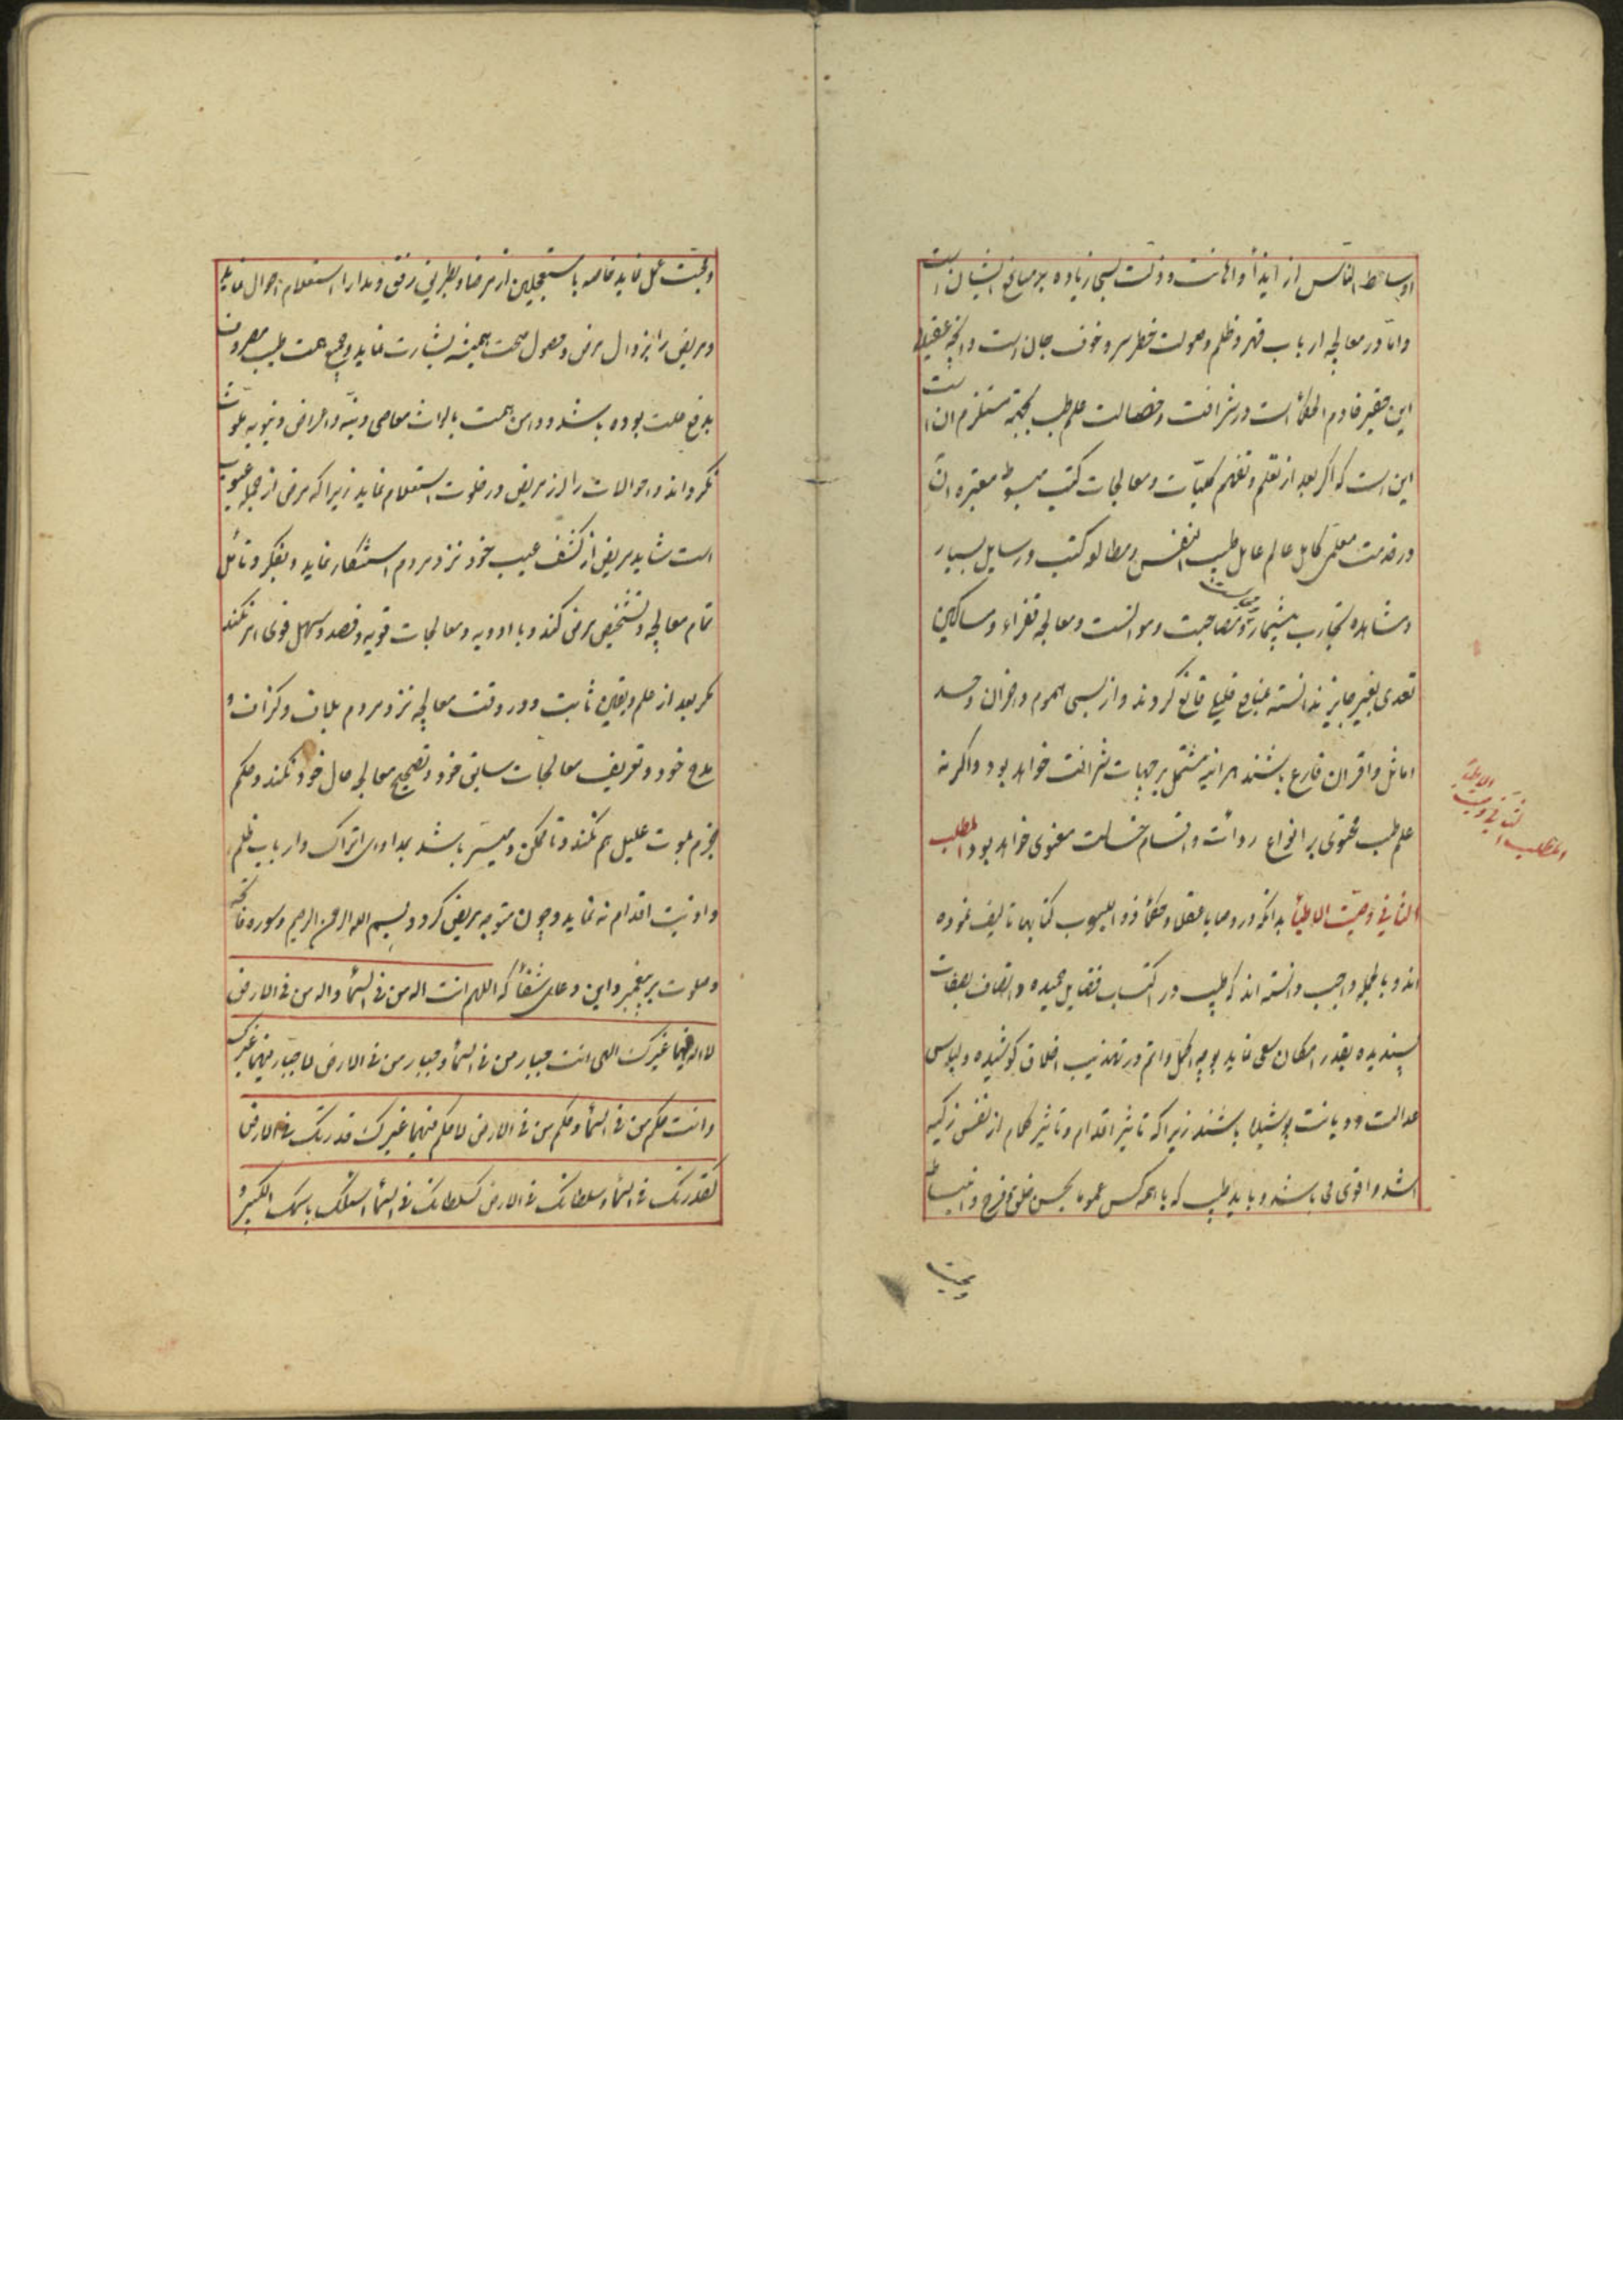 اوساط الناس از ایذا و اهانت و ذلت بسی زیاده بر مبالغ ایشان است
و اما در معالجه ارباب قهر و ظلم و صولت خطر سر و خوف جان است و آنچه عقیده
این حقیر خادم الحکماست در شرافت و خصالت علم طب بجهة مستلزم ان است
این است که اکر بعد از تعلم و تفهم کلیات و معالجات کتب مبسوطه معتبره آن
در خدمت معلم کامل عالم عامل طبیب النفس و مطالعه کتب و رسایل بسیار
و مشاهده تجارب بیشمار و مصاحبت و موانست و معالجه فقراء و مساکین
تعدی بغیر جایز ندانسته بمنافع قلیل قانع کردند و از بسی هموم و احزان و حسد
اماثل و اقران فارغ باشند هر اینه مشتمل بر جهات شرافت خواهد بود و اکر نه
علم طب محتوی بر انواع ردائت و اقسام خساست معنوی خواهد بود المطلب
الثانی فی وصیت الاطبا بدانکه در وصایا عقلا و حکما ذو العیوب کتابها تالیف نموده
اند و بالجمله واجب دانسته اند که طبیب در اکتساب فضایل حمیده و اتصاف بصفات
پسندیده بقدر امکان سعی نماید بوجه اکمل و اتم در تهذیب اخلاق کوشیده و لباس
عدالت و دیانت پوشیده باشند زیرا که تاثیر اقدام و تاثیر کلام از نفس زکیه
اشد و اقوی می باشد و باید طبیب که با همه کس عموما بحسن خلق و فرح و انبساط
و محبت
المطلب الثانی فی وصیت الاطبا
و محبت عمل نماید خاصه با مستعجلین از مرضا و بطریق رفق و مدارا استعلام احوال نماید
و مریض را بزوال مرض و حصول صحت همیشه بشارت نماید و جمیع همت طبیب مصروف
بدفع علت بوده باشد و دامن همت بالواث معاصی دنیه و اعراض دنیویه ملوث
نکرداند و احوالات را از مریض در خلوت استعلام نماید زیرا که مرض از جمله عیوب
است شاید مریض از کشف عیب خود نزد مردم استنکار نماید و بفکر و تامل
تمام معالجه و تشخیص مرض کند و با ادویه و معالجات قویه و فصد و مسهل قوی امر نکند
مکر بعد از علم و یقین ثابت و در وقت معالجه نزد مردم بلاف و کزاف و
مدح خود و تعریف معالجات سابق خود و تصحیح معالجه حال خود نکند و حکم
بجزم بموت علیل هم نکند و تا ممکن و میسر باشد بمداوای اتراک و ارباب ظلم
و اذیت اقدام نه نماید و چون متوجه مریض کردد بسم الله الرحمن الرحیم و سوره فاتحه
و صلوت بر پیغمبر و این دعای شفا که اللهم انت اله من فی السما و اله من فی الارض
لا اله فیهما غیرک الهی انت جبار من فی السما و جبار من فی الارض لا جبار فیهما غیرک
و انت حکم من فی السما و حکم من فی الارض لا حکم فیهما غیرک قدرتک فی الارض
کقدرتک فی السما و سلطانک فی الارض کسلطانک فی السما اسئلک باسمک الکبیر و